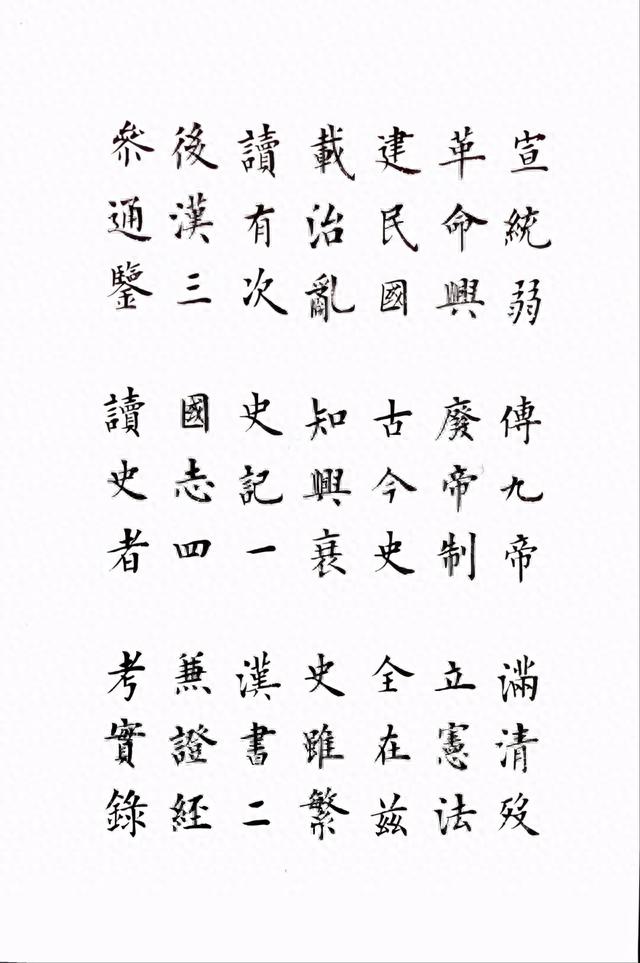 宣統弱 傳九帝 滿清歿
革命興 廢帝制 立憲法
建民國 古今史 全在茲
載治亂 知興衰 史雖繁
讀有次 史記一 漢書二
後漢三 國志四 兼證經
參通鑒 讀史者 考實錄